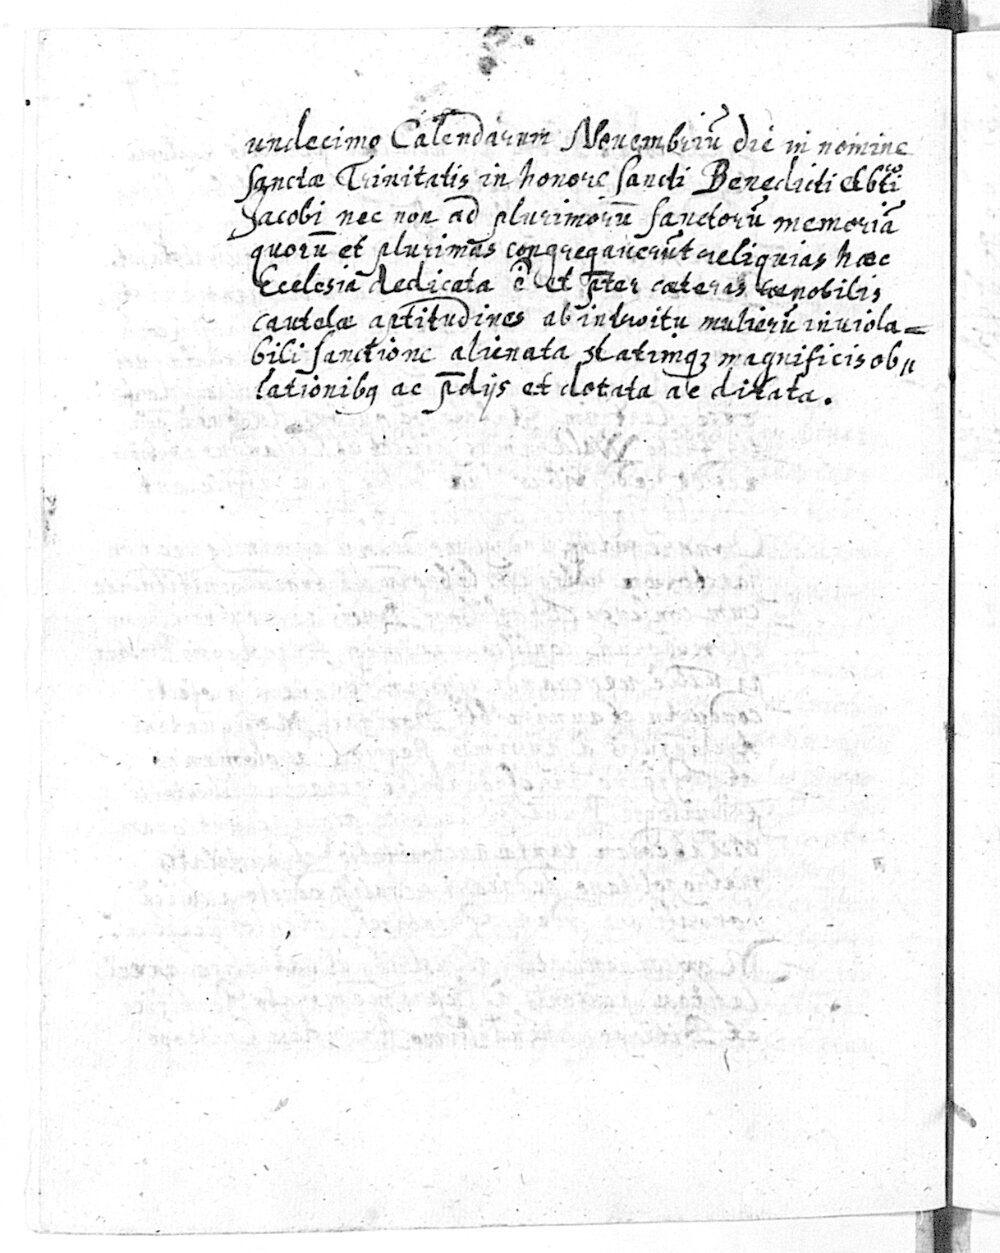 undecimo Calendarum Nouembriũ die in nomine
sanctæ Trinitatis in honore sancti Benedicti et bti
Jacobi nec non ad plurimorũ sanctorũ memoriã
quorũ et plurimas congregauerũt reliquias hæc
Ecclesia dedicata ẽ et p̃ter cæteras cœnobilis
cautelæ aptitudines ab introitu mulierũ inuiola=
bili sanctione alienata statimqꝫ magnificis ob„
lationibꝗ ac p̃dijs et dotata ac ditata.